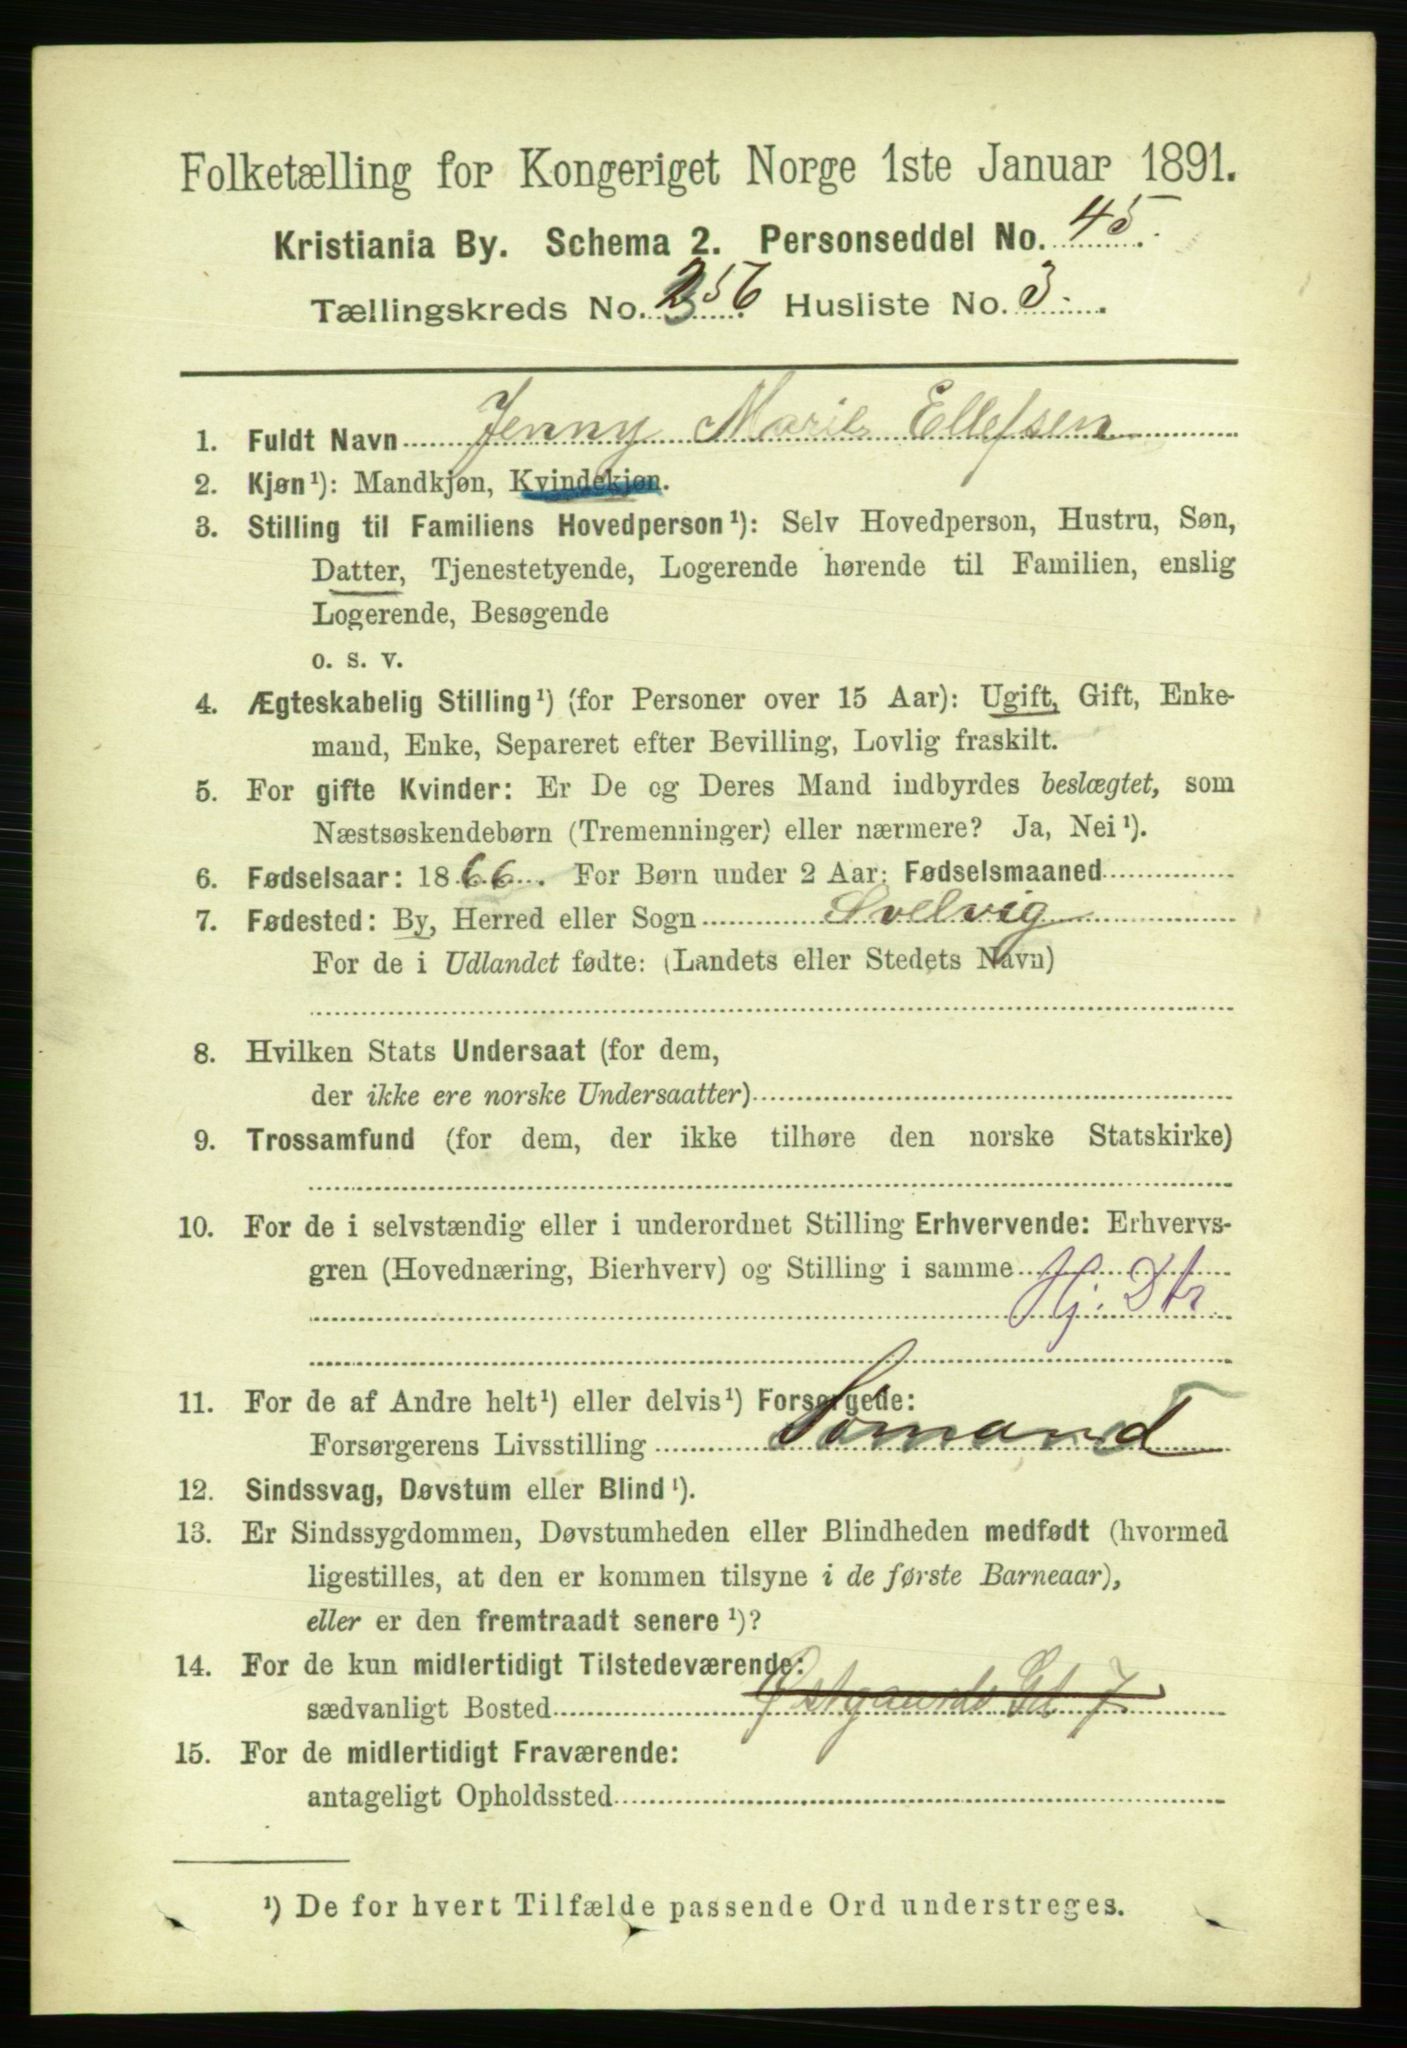 Folketælling for Kongeriget Norge 1ste Januar 1891.
Kristiania By. Schema 2. Personseddel No. 45.
Tællingskreds No. 256 Husliste No. 3.
1. Fuldt Navn Jenny Marie Ellefsen
2. Kjøn¹): Mandkjøn, Kvindekjøn.
3. Stilling til Familiens Hovedperson¹): Selv Hovedperson, Hustru, Søn,
Datter, Tjenestetyende, Logerende hørende til Familien, enslig
Logerende, Besøgende
o. s. v.
4. Ægteskabelig Stilling¹) (for Personer over 15 Aar): Ugift, Gift, Enke-
mand, Enke, Separeret efter Bevilling, Lovlig fraskilt.
5. For gifte Kvinder: Er De og Deres Mand indbyrdes beslægtet, som
Næstsøskendebørn (Tremenninger) eller nærmere? Ja, Nei¹).
6. Fødselsaar: 1866. For Børn under 2 Aar: Fødselsmaaned
7. Fødested: By, Herred eller Sogn Svelvig
For de i Udlandet fødte: (Landets eller Stedets Navn)
8. Hvilken Stats Undersaat (for dem,
der ikke ere norske Undersaatter)
9. Trossamfund (for dem, der ikke tilhøre den norske Statskirke)
10. For de i selvstændig eller i underordnet Stilling Erhvervende: Erhvervs-
gren (Hovednæring, Bierhverv) og Stilling i samme
Hj. Dtr
11. For de af Andre helt¹) eller delvis¹) Forsørgede:
Forsørgerens Livsstilling Sømand
12. Sindssvag, Døvstum eller Blind¹).
13. Er Sindssygdommen, Døvstumheden eller Blindheden medfødt (hvormed
ligestilles, at den er kommen tilsyne i de første Barneaar),
eller er den fremtraadt senere¹)?
14. For de kun midlertidigt Tilstedeværende:
sædvanligt Bosted Østgaards Gd 7
15. For de midlertidigt Fraværende:
antageligt Opholdssted
¹) De for hvert Tilfælde passende Ord understreges.